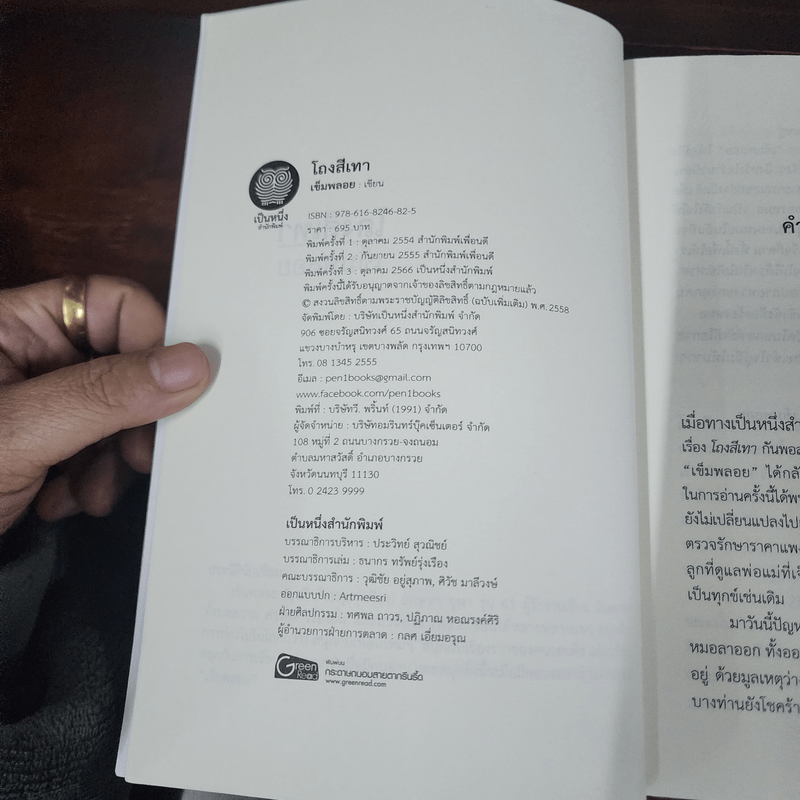 โถงสีเทา
เข็มพลอย : เขียน
เป็นหนึ่ง
สำนักพิมพ์
ISBN : 978-616-8246-82-5
ราคา : 695 บาท
พิมพ์ครั้งที่ 1 : ตุลาคม 2554 สำนักพิมพ์เพื่อนดี
พิมพ์ครั้งที่ 2 : กันยายน 2555 สำนักพิมพ์เพื่อนดี
พิมพ์ครั้งที่ 3 : ตุลาคม 2566 เป็นหนึ่งสำนักพิมพ์
พิมพ์ครั้งนี้ได้รับอนุญาตจากเจ้าของลิขสิทธิ์ตามกฎหมายแล้ว
© สงวนลิขสิทธิ์ตามพระราชบัญญัติลิขสิทธิ์ (ฉบับเพิ่มเติม) พ.ศ. 2558
จัดพิมพ์โดย : บริษัทเป็นหนึ่งสำนักพิมพ์ จำกัด
906 ซอยจรัญสนิทวงศ์ 65 ถนนจรัญสนิทวงศ์
แขวงบางบำหรุ เขตบางพลัด กรุงเทพฯ 10700
โทร. 08 1345 2555
อีเมล : pen1books@gmail.com
www.facebook.com/pen1books
พิมพ์ที่ : บริษัทวี. พริ้นท์ (1991) จำกัด
ผู้จัดจำหน่าย : บริษัทอมรินทร์บุ๊คเซ็นเตอร์ จำกัด
108 หมู่ที่ 2 ถนนบางกรวย-จงถนอม
ตำบลมหาสวัสดิ์ อำเภอบางกรวย
จังหวัดนนทบุรี 11130
โทร. 0 2423 9999
เป็นหนึ่งสำนักพิมพ์
บรรณาธิการบริหาร : ประวิทย์ สุวณิชย์
บรรณาธิการเล่ม : ธนากร ทรัพย์รุ่งเรือง
คณะบรรณาธิการ : วุฒิชัย อยู่สุภาพ, ศิวัช มาลีวงษ์
ออกแบบปก : Artmeesri
ฝ่ายศิลปกรรม : ทศพล ถาวร, ปฏิภาณ หอณรงค์ศิริ
ผู้อำนวยการฝ่ายการตลาด : กลศ เอี่ยมอรุณ
Green
Read
พิมพ์บน
กระดาษถนอมสายตากรีนรี้ด
www.greenread.com
คำ
เมื่อทางเป็นหนึ่งสำ
เรื่อง โถงสีเทา กันพอส
"เข็มพลอย" ได้กลั
ในการอ่านครั้งนี้ได้พ
ยังไม่เปลี่ยนแปลงไป
ตรวจรักษาราคาแพง
ลูกที่ดูแลพ่อแม่ที่เ
เป็นทุกข์เช่นเดิม
มาวันนี้ปัญห
หมอลาออก ทั้งออ
อยู่ ด้วยมูลเหตุว่า
บางท่านยังโชคร้า